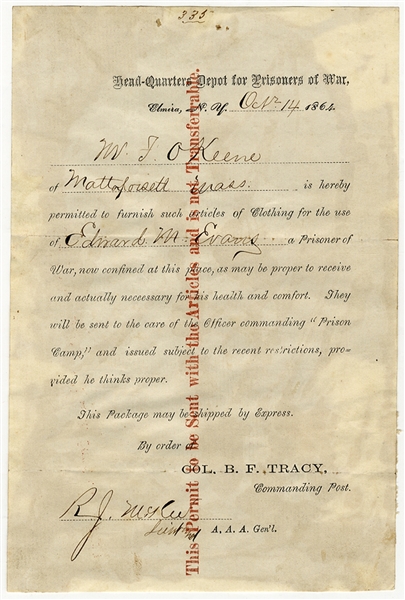 335
Head-Quarters Depot for Prisoners of War,
Elmira, N. Y. Octr 14 1864.
W. J. O Keene
of Mattapoisett Mass. is hereby
permitted to furnish such articles of Clothing for the use
of Edward M. Evans a Prisoner of
War, now confined at this place, as may be proper to receive
and actually necessary for his health and comfort. They
will be sent to the care of the Officer commanding "Prison
Camp," and issued subject to the recent restrictions, pro-
vided he thinks proper.
This Package may be shipped by Express.
By order of
COL. B. F. TRACY,
Commanding Post.
R. J. McKee
A. A. A. Gen'l.
This Permit to be Sent with the Articles and is not Transferrable.